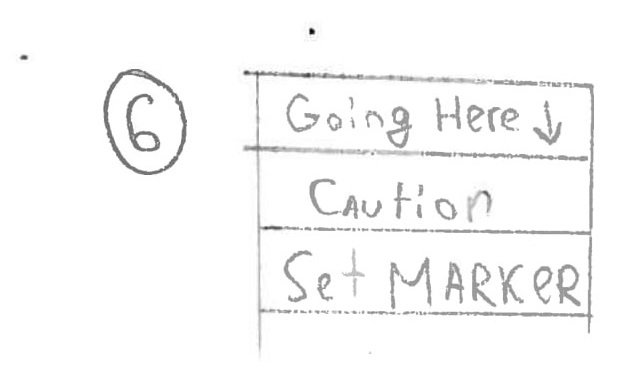 6
Going Here ↓
CAUtion
Set MARKeR